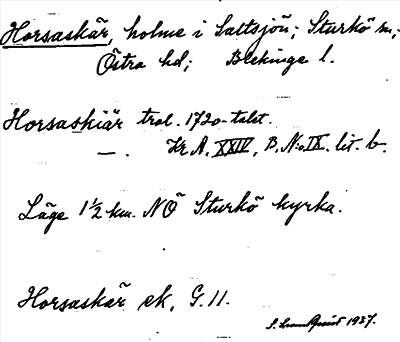 Horsaskär, holme i Saltsjön; Sturkö sn;
Östra hd; Blekinge l.
Horsaskiär trol. 1720-talet.
— . Kr. A. XXIV, B. No IX. lit. b.
Läge 1 1/2 km. NÖ Sturkö kyrka.
Horsaskär ek. G. 11.
1937.